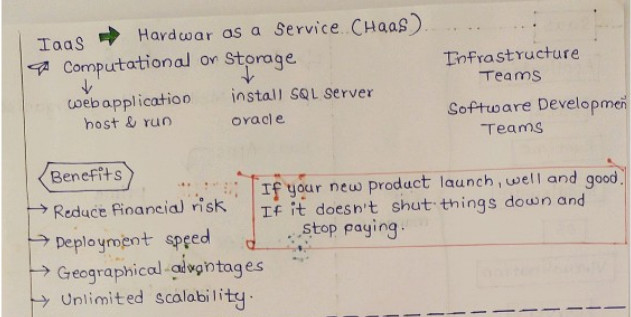 IaaS → Hardwar as a Service (HaaS)
Computational or Storage
↓ ↓
webapplication install SQL server
host & run oracle
Infrastructure
Teams
Software Developmen
Teams
Benefits
→ Reduce Financial risk
→ Deployment speed
→ Geographical advantages
→ Unlimited scalability.
If your new product launch, well and good.
If it doesn't shut things down and
stop paying.